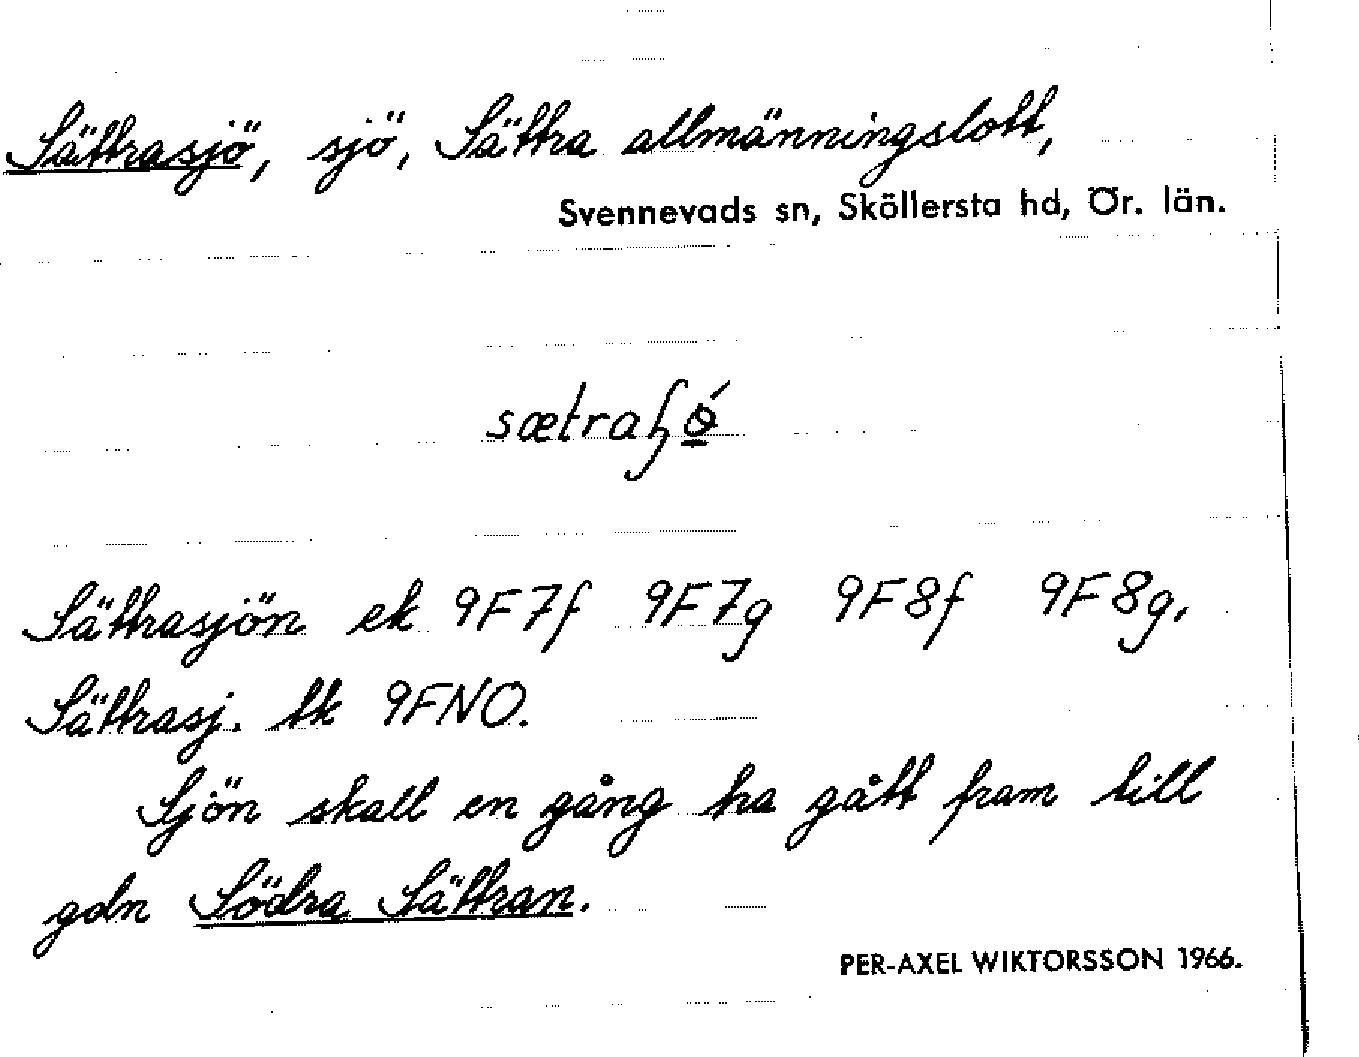 Sättrasjö, sjö, Sättra allmänningslott,
Svennevads sn, Sköllersta hd, Ör. län.
Sättrasjön ek 9F7f 9F7g 9F8f 9F8g,
Sättrasj. tk 9FNO.
Sjön skall en gång ha gått fram till
gdn Södra Sättran.
PER-AXEL WIKTORSSON 1966.